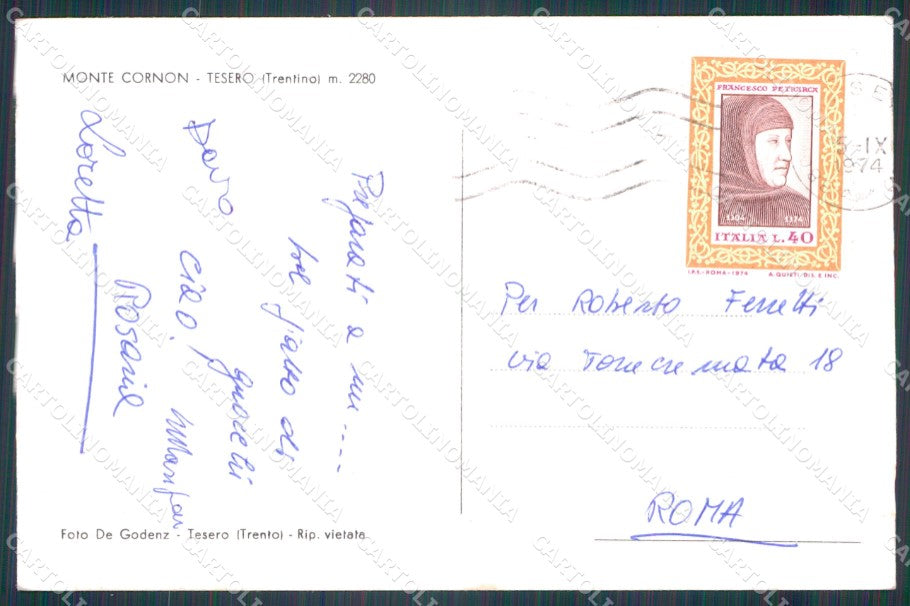 MONTE CORNON - TESERO (Trentino) m. 2280
Preparati a un....
bel piatto di
gnocchi
ciao,
Rosaria
Loretta
Foto De Godenz - Tesero (Trento) - Rip. vietata
FRANCESCO PETRARCA
1304 1374
ITALIA L. 40
I.P.S.-ROMA-1974 A. QUIETI/DIS. E INC.
-IX
974
Per Roberto Ferretti
via Torrecremata 18
ROMA
CARTOLINOMANIA